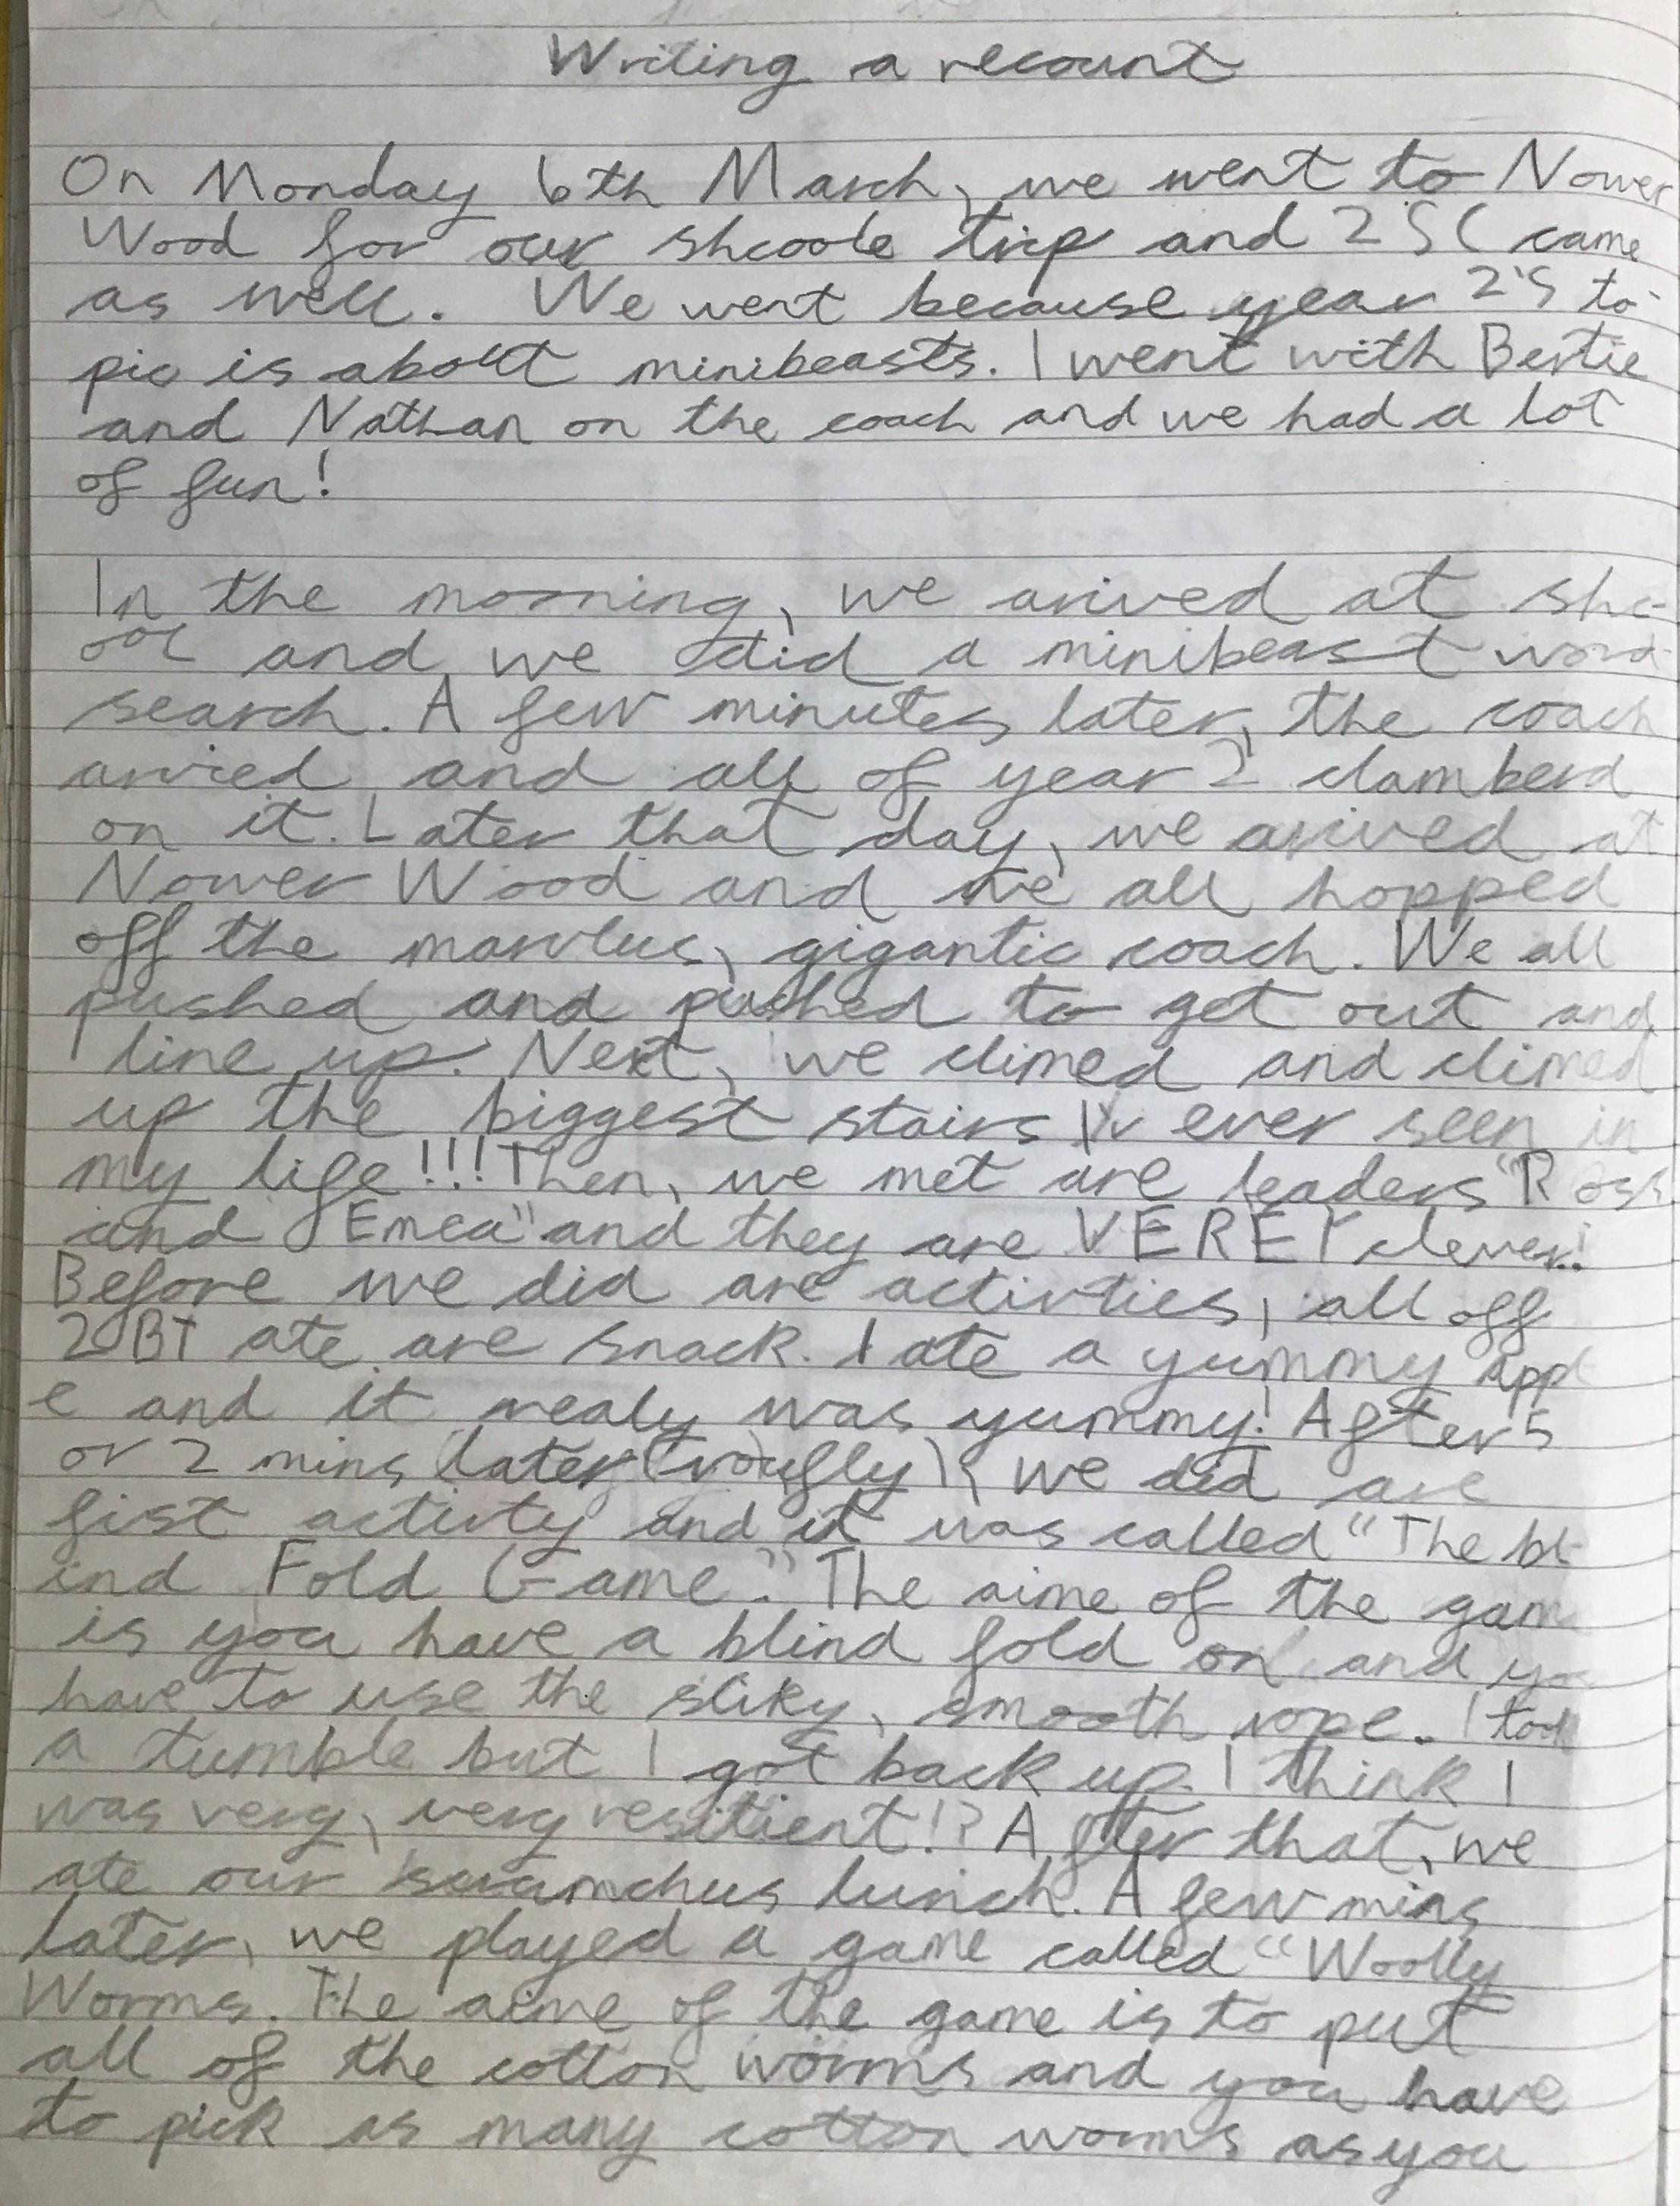 Writing a recount
On Monday 6th March, we went to Nower
Wood for our shcoole trip and 2SC came
as well. We went because year 2's to-
pic is about minibeasts. I went with Bertie
and Nathan on the coach and we had a lot
of fun!
In the morning, we arived at shc-
ool and we did a minibeast word
search. A few minutes later, the coach
arried and all of year 2 clamberd
on it. Later that day, we arived at
Nower Wood and we all hopped
off the marvlus, gigantic coach. We all
pushed and pushed to get out and
line up. Next, we climed and climed
up the biggest stairs I'v ever seen in
my life!!! Then, we met are leaders "Ross
and Emea" and they are VEREY clever!
Before we did are activties, all off
2BT ate are snack. I ate a yummy appl
e and it realy was yummy! After 5
or 2 mins later (roufly), we did are
fist activty and it was called "The bl-
ind Fold Game." The aime of the gam
is you have a blind fold on and you
have to use the sliky, smooth rope. I took
a tumble but I got back up. I think I
was very, very resitient!? After that, we
ate our scrumchus lunch. A few mins
later, we played a game called "Woolly
Worms. The aime of the game is to put
all of the cotton worms and you have
to pick as many cotton worms as you